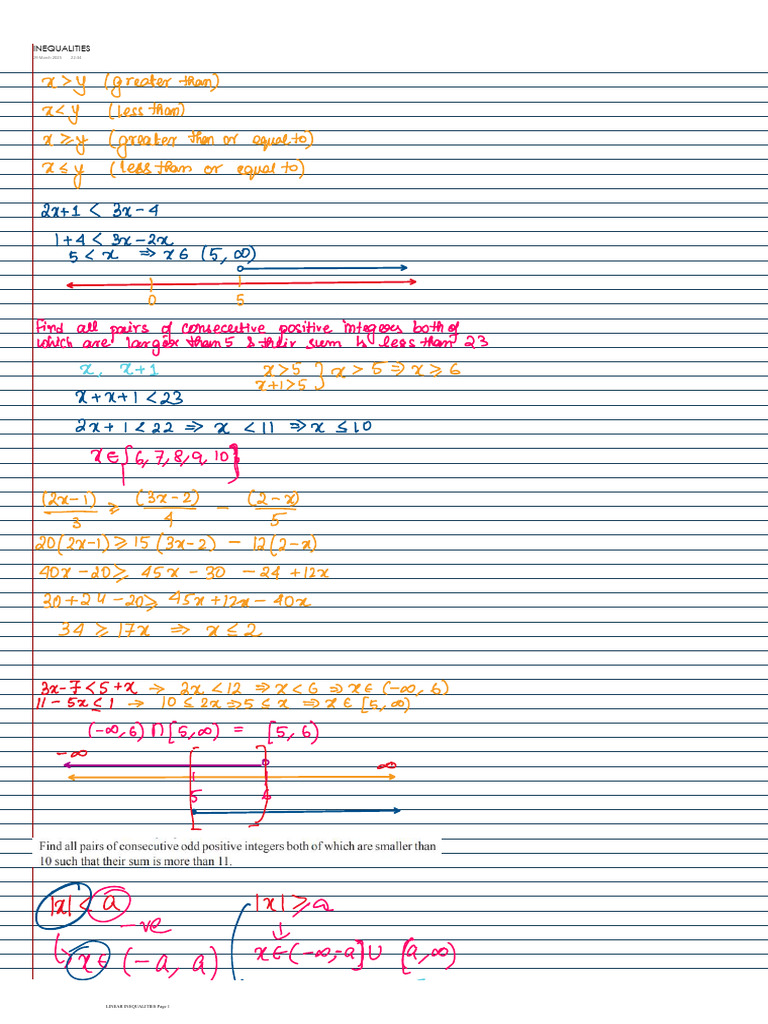 INEQUALITIES
x > y (greater than)
x < y (less than)
x ≥ y (greater then or equal to)
x ≤ y (less than or equal to)
2x+1 < 3x-4
1+4 < 3x-2x
5 < x ⇒ x ∈ (5, ∞)
0 5
Find all pairs of consecutive positive integers both of
which are larger than 5 & their sum is less than 23
x, x+1 x>5 } x > 5 ⇒ x ≥ 6
x+1>5
x+x+1 < 23
2x+1 < 22 ⇒ x < 11 ⇒ x ≤ 10
x ∈ {6, 7, 8, 9, 10}
(2x-1)/3 ≥ (3x-2)/4 - (2-x)/5
20(2x-1) ≥ 15(3x-2) - 12(2-x)
40x-20 ≥ 45x-30 -24+12x
30+24-20 ≥ 45x+12x-40x
34 ≥ 17x ⇒ x ≤ 2
3x-7 < 5+x → 2x < 12 ⇒ x < 6 ⇒ x ∈ (-∞, 6)
11-5x ≤ 1 → 10 ≤ 2x ⇒ 5 ≤ x ⇒ x ∈ [5, ∞)
(-∞, 6) ∩ [5, ∞) = [5, 6)
-∞ ∞
5 6
Find all pairs of consecutive odd positive integers both of which are smaller than
10 such that their sum is more than 11.
|x| < a |x| ≥ a
-ve
x ∈ (-a, a) x ∈ (-∞, -a] ∪ [a, ∞)
LINEAR INEQUALITIES Page 1